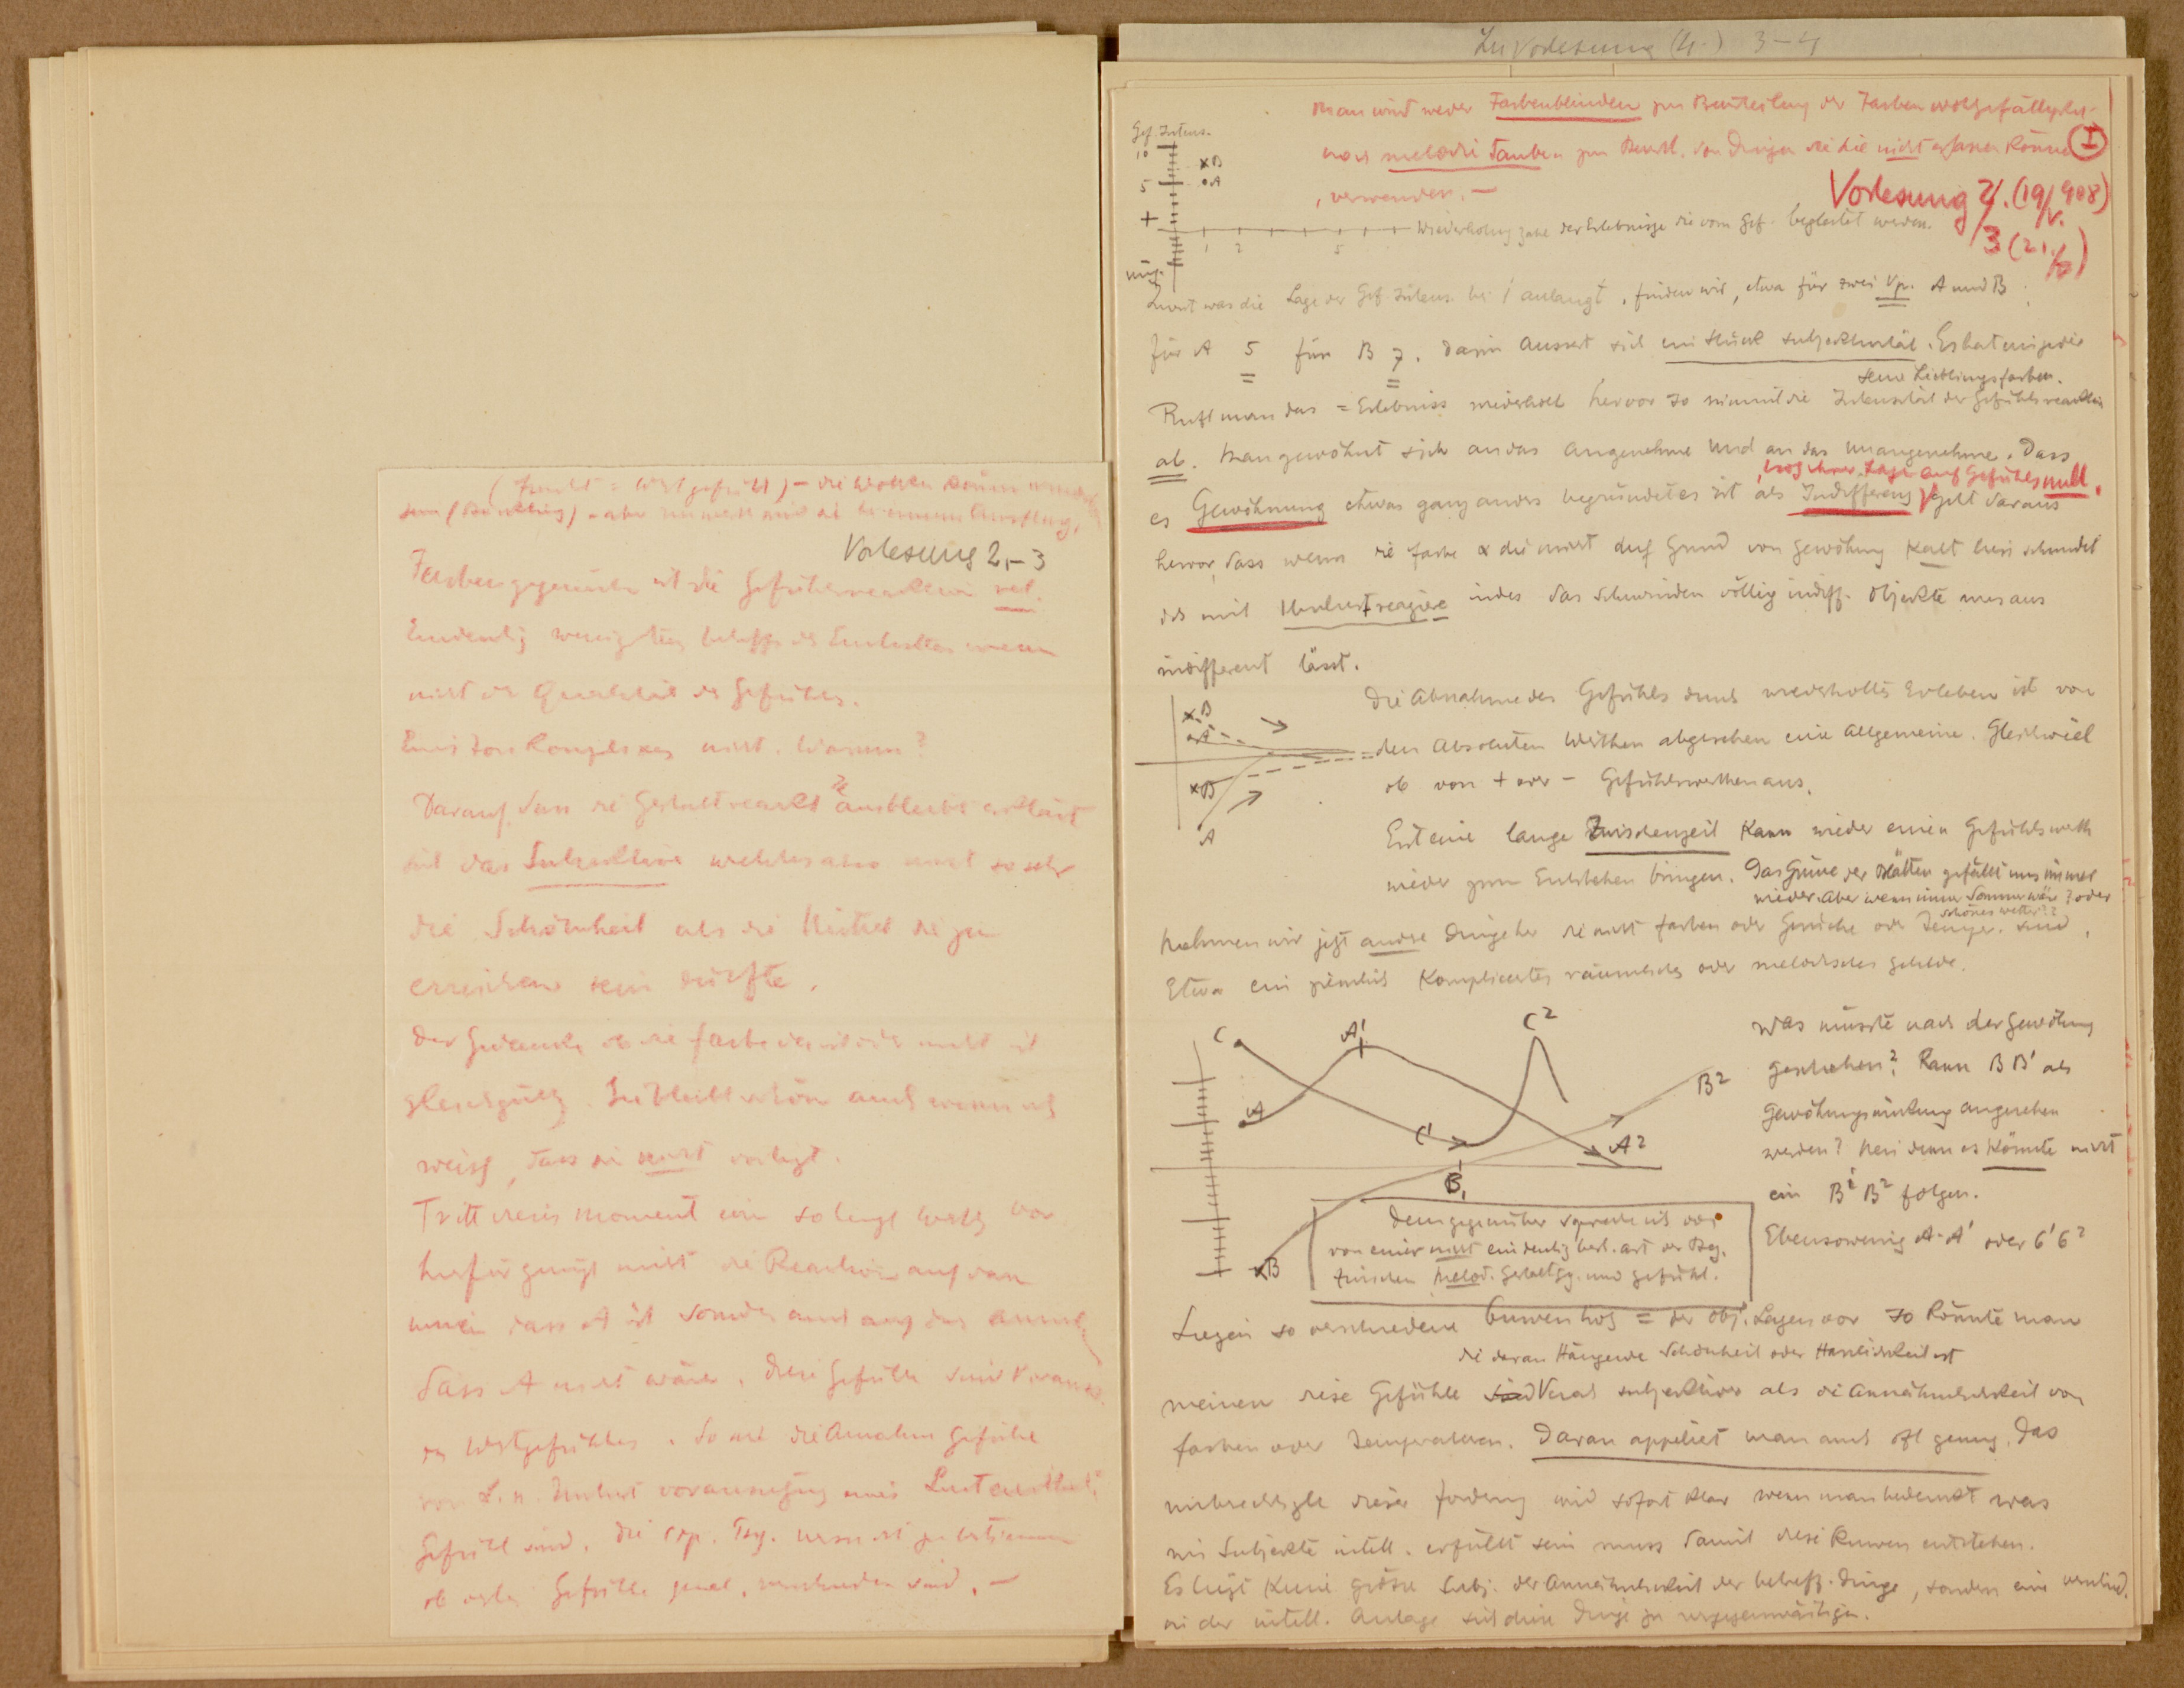 (Frucht = Wertgefühl) – die Wolken können
sein (Bau) – aber mir bei einem Ausflug.
Vorlesung 2,–3
Farben gegenüber ist die Gefühlsreaktion rel.
Eindeutig wenigstens betreffs des Eintretens wenn
nicht der Qualität des Gefühles.
Eines Tonkomplexes nicht. Warum?
Darauf, dass die Gestaltreakt ausbleibt erklärt
sich das Subjektive welches also nicht so sehr
die Schönheit als die Mittel die zu
erreichen sein dürfte.
Der Gedanke ob die Farbe da ist oder nicht ist
gleichgültig. Sie bleibt schön auch wenn ich
weiss, dass sie nicht vorliegt.
Tritt dieses Moment ein so liegt Wertg. vor
hiefür genügt nicht die Reaktion auf das
dass A ist sondern auch auf das
dass A nicht wäre. Diese Gefühle sind
des Wertgefühles. So wie die Annahme Gefühle
von L. u. Unlust voraussetzung eines
Gefühl sind. Die exp. Psy. zu bestimmen
ob Gefühle verschieden sind. –
Zu Vorlesung (4.) 3–4
Man wird weder Farbenblinden zur Beurteilung der Farbenwolgefälligkeit
noch melodietauben zur Beurtl. von Dingen die sie nicht erfassen können
I
, verwenden. –
Vorlesung 2/. (19/V. 908)
3 (21./5)
Gef. Intens.
10
× B
5
• A
+
1 2 5
Wiederholungszahl der Erlebnisse die vom Gef. begleitet werden.
Zuerst was die Lage der Gef. Intens. bei 1 anlangt, finden wir, etwa für zwei Vp. A und B
für A 5 für B 7. Darin äussert sich ein Stück Subjektivität. Es hat ein jeder
seine Lieblingsfarben.
Ruft man das = Erlebniss wiederholt hervor so nimmt die Intensität der Gefühlsreaktion
ab. Man gewöhnt sich an das Angenehme und an das Unangenehme. Dass
trotz ihrer Lage auf Gefühlsnull.
es Gewöhnung etwas ganz anders begründetes ist als Indifferenz geht daraus
hervor, dass wenn die Farbe α die mich auf Grund von Gewöhnung kalt liess schwindet
ich mit Unlust reagire indes das Schwinden völlig indiff. Objekte mich aus
indifferent lässt.
× B
A
× B
A
Die Abnahme des Gefühls durch wiederholtes Erleben ist von
den Absoluten Werthen abgesehen eine Allgemeine. Gleichviel
ob von + oder – Gefühlswerthen aus.
Erst eine lange Zwischenzeit kann wieder einen Gefühlswerth
wieder zum Entstehen bringen. Das Grüne der Blätter gefällt uns immer
wieder. Aber wenn immer Sommer wäre? oder
schönes Wetter??
Nehmen wir jetzt andere Dinge her die nicht Farben oder Gerüche oder Temper. sind.
Etwa ein ziemlich Kompliciertes räumliches oder melodisches Gebilde.
C A¹ C²
A
C¹
B²
A²
B₁
× B
Was müsste nach der Gewöhnung
geschehen? Kann B B' als
Gewöhnungswirkung angesehen
werden? Nein denn es könnte nicht
ein B¹ B² folgen.
Ebensowenig A-A' oder C'C²
Demgegenüber spreche ich von
von einer nicht eindeutig best. Art der Bez.
zwischen Melod. Gestaltgg. und Gefühl.
Liegen so verschiedene Curven trotz = der obj. Lagen vor so könnte man
die daran Hängende Schönheit oder Hässlichkeit ist
meinen diese Gefühle subjektiver als die Annehmlichkeit von
Farben oder Temperaturen. Daran appeliert man auch oft genug. Das
unberechtigte dieser Forderung wird sofort klar wenn man bedenkt was
im Subjekte intell. erfüllt sein muss damit diese Kurven entstehen.
Es liegt keine grösse Subj. der Annehmlichkeit der betreff. Dinge, sondern eine verschied.
in der intell. Anlage sich diese Dinge zu vergegenwärtigen.